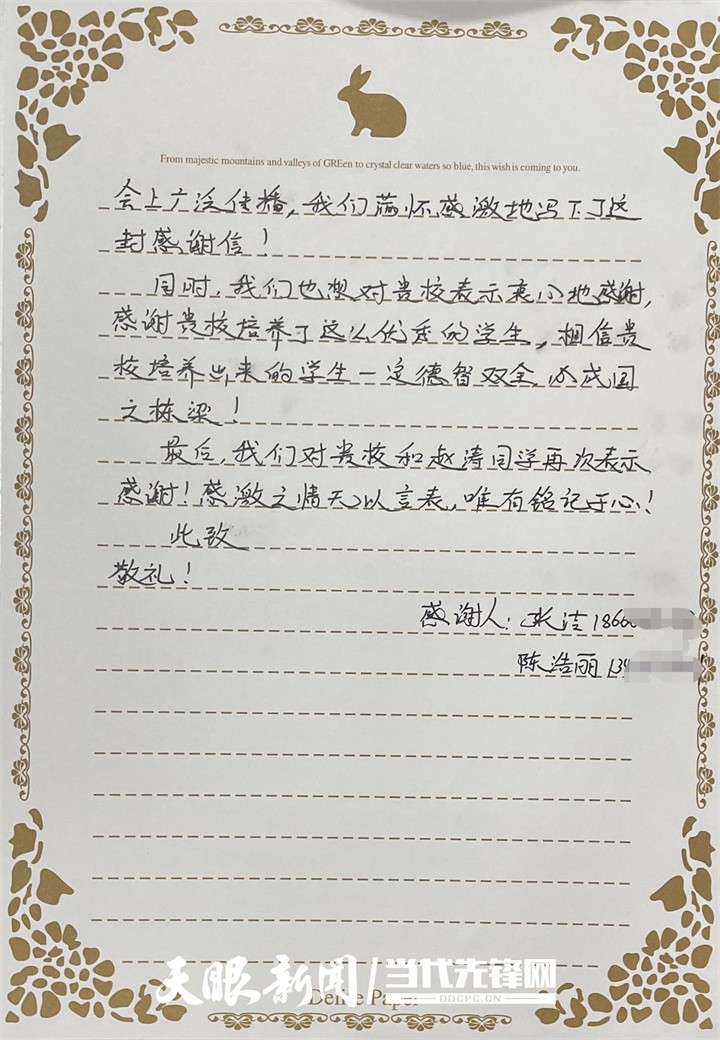 From majestic mountains and valleys of GREen to crystal clear waters so blue, this wish is coming to you.
会上广泛传播，我们满怀感激地写下了这
封感谢信！
同时，我们也想对贵校表示衷心地感谢，
感谢贵校培养了这么优秀的学生，相信贵
校培养出来的学生一定德智双全 必成国
之栋梁！
最后，我们对贵校和赵涛同学再次表示
感谢！感激之情无以言表，唯有铭记于心！
此致
敬礼！
感谢人：张洁 1866
陈浩丽 139
天眼新闻/当代先锋网
DDCPC.CN
Define Paper